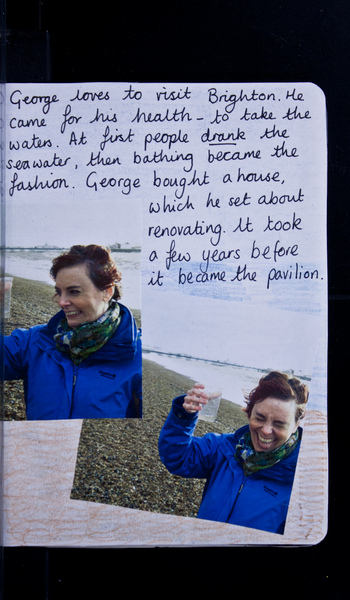 George loves to visit Brighton. He
came for his health – to take the
waters. At first people drank the
seawater, then bathing became the
fashion. George bought a house,
which he set about
renovating. It took
a few years before
it became the pavilion.